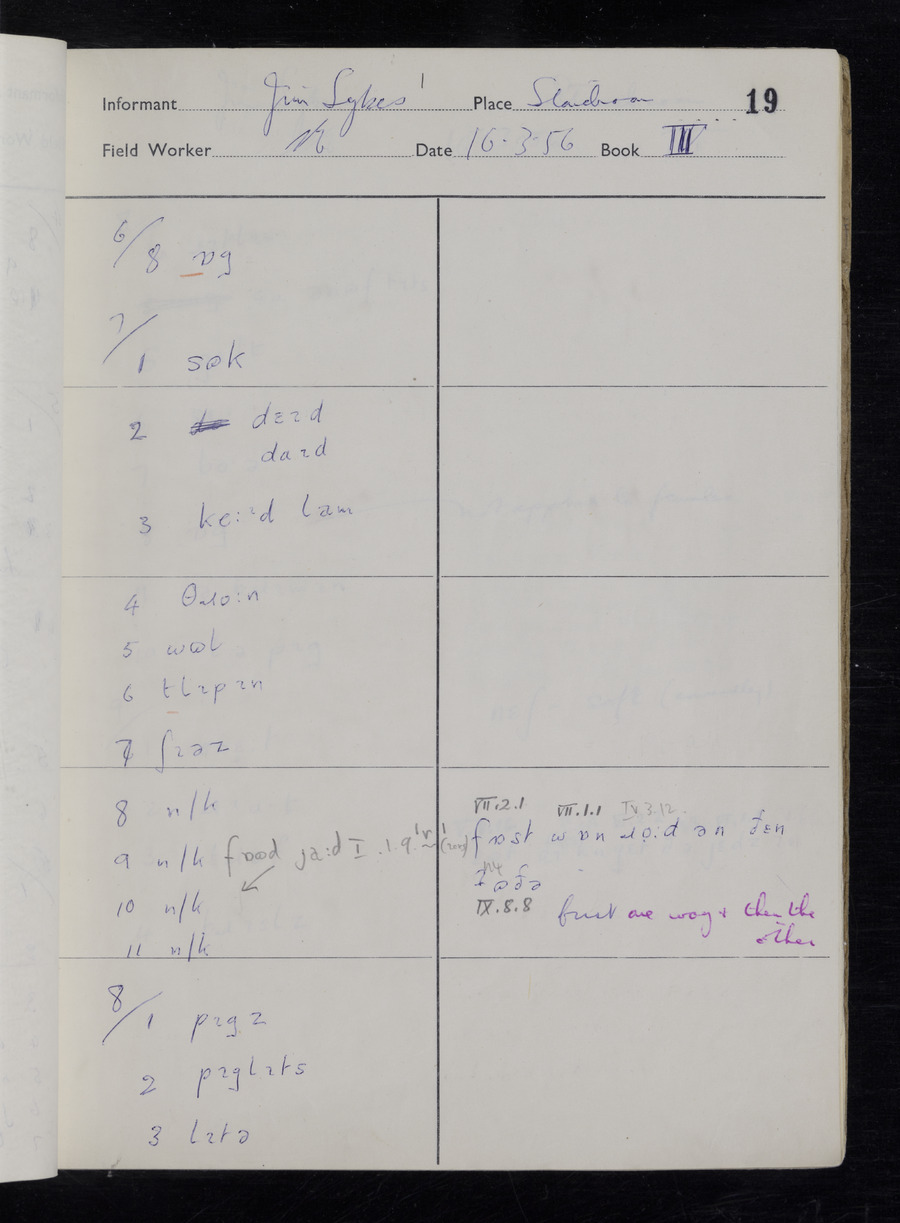 Informant Jim Sykes Place 19
Field Worker Date 16.3.56 Book III
6/
8 ɒg
7/
1 sɷk
2 dɛɪd
daɪd
3 ke:ɪd lam
4 θɹo:n
5 wɷl
6 tlɪpɪn
7 ʃɪəz
8 n/k
9 n/k fɷɷd ja:d I.1.9
10 n/k
11 n/k
VII.2.1 VII.1.1 IV.3.12
fɒst wɒn ɹo:d ən ðɛn
IX.8.8
first one way & then the
other
8/
1 pɪgz
2 pɪglɪts
3 lɪtə